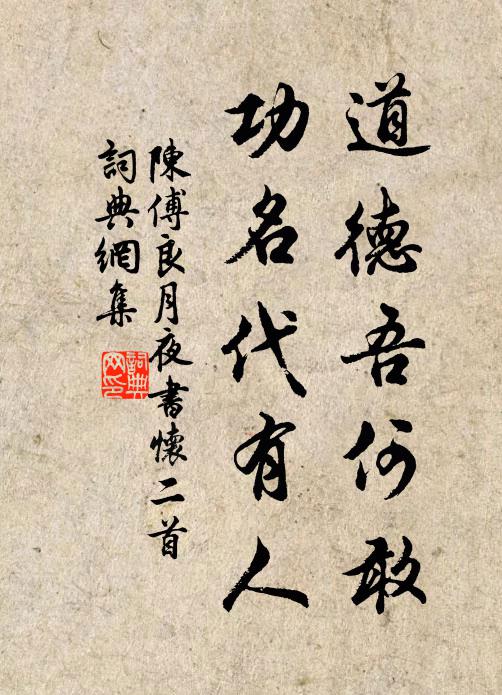 道德吾何敢
功名代有人
陳傅良月夜書懷二首
詞典網集
詞典
网印